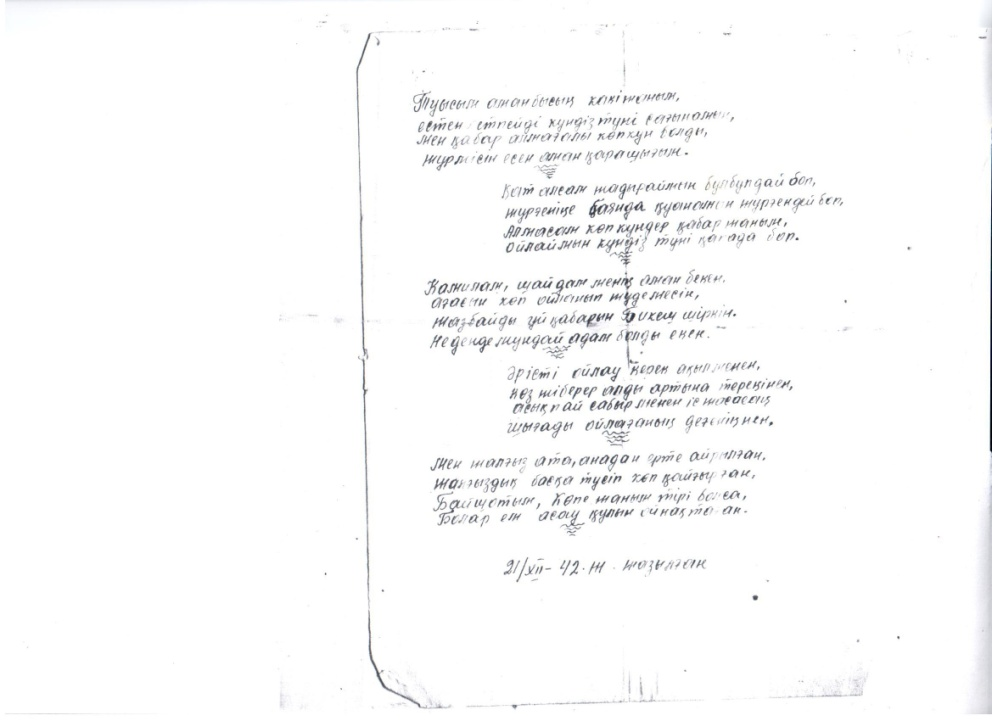 Туысым аманбысың кәкітаным,
естен кетпейді күндіз түні сағынамын,
Мен қабар алмағалы көп күн болды,
жүрмісің есен аман қарашығым.
Қат алсам жадыраймын бұлбұлдай боп,
жүргеніңе баянда қуанамын жүргендей боп,
Алмасам көп күндер қабар жаным,
ойлаймын күндіз түні қапада боп.
Камилам, шайдам менің аман бекен.
ағасын көп ойланып жүдемесін,
жазбайды үй қабарын Бикеш шіркін.
Не деген мұндай адам болды екен.
Әрісті ойлау керек ақылменен,
көз жіберер алды артына тереңінен,
асықпай сабырменен іс жасасаң
шығады ойлағаның дегеніңнен.
Мен жалғыз ата, анадан ерте айрылған.
жалғыздық басқа түсіп көп қайғырған,
Байшотым, Көпе жаным тірі болса,
Болар ем асау құлын ойнақтаған.
21/XII- 42. ж. жазылған